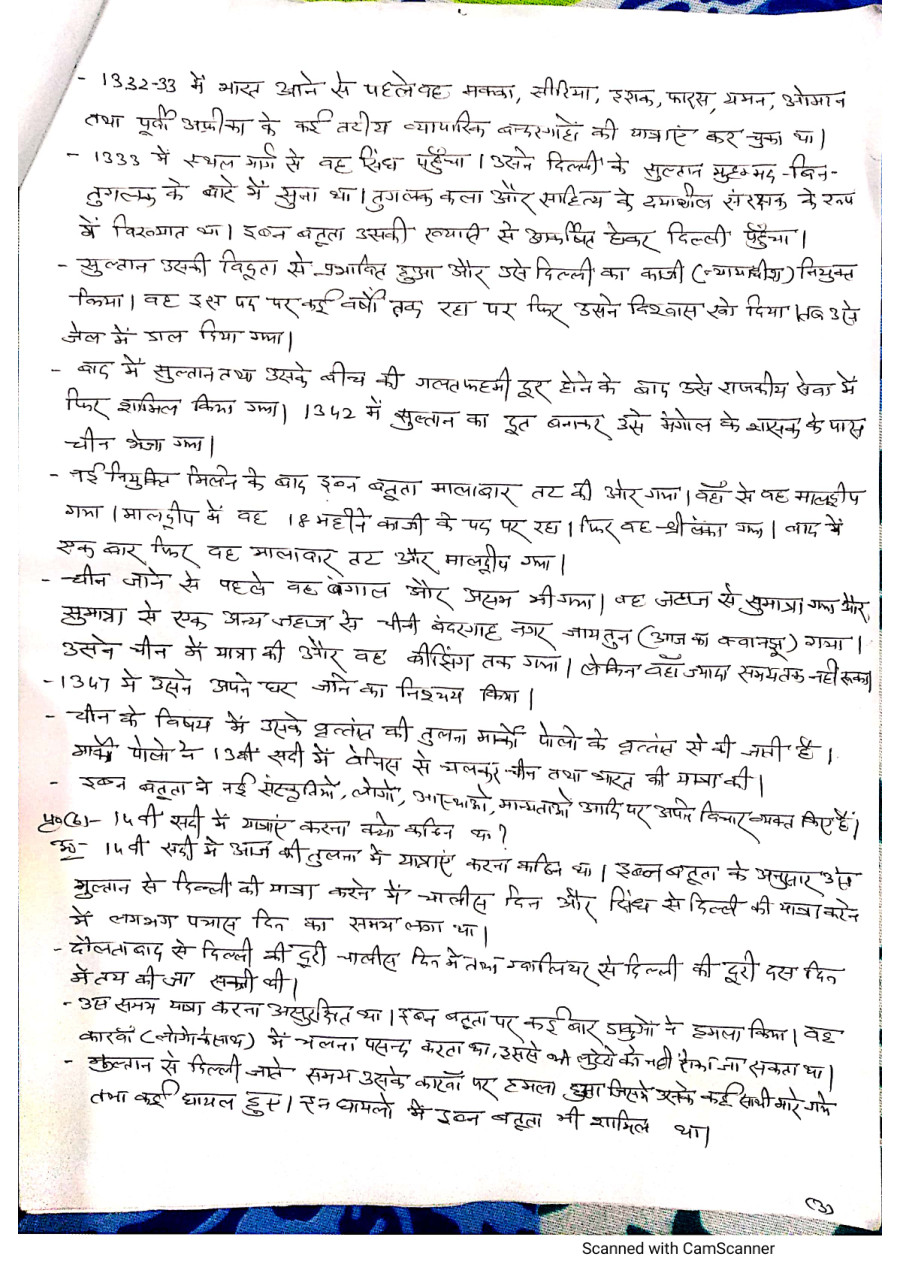 - 1332-33 में भारत आने से पहले वह मक्का, सीरिया, इराक, फारस, यमन, ओमान
तथा पूर्वी अफ्रीका के कई तटीय व्यापारिक बन्दरगाहों की यात्राएं कर चुका था।
- 1333 में स्थल मार्ग से वह सिंध पहुँचा। उसने दिल्ली के सुल्तान मुहम्मद-बिन-
तुगलक के बारे में सुना था। तुगलक कला और साहित्य के दयाशील संरक्षक के रूप
में विख्यात था। इब्न बतूता उसकी ख्याति से आकर्षित होकर दिल्ली पहुँचा।
- सुल्तान उसकी विद्वता से प्रभावित हुआ और उसे दिल्ली का काजी (न्यायाधीश) नियुक्त
किया। वह इस पद पर कई वर्षों तक रहा पर फिर उसने विश्वास खो दिया। तब उसे
जेल में डाल दिया गया।
- बाद में सुल्तान तथा उसके बीच की गलतफहमी दूर होने के बाद उसे राजकीय सेवा में
फिर शामिल किया गया। 1342 में सुल्तान का दूत बनाकर उसे मंगोल के शासक के पास
चीन भेजा गया।
- नई नियुक्ति मिलने के बाद इब्न बतूता मालाबार तट की ओर गया। वहाँ से वह मालद्वीप
गया। मालद्वीप में वह 18 महीने काजी के पद पर रहा। फिर वह श्रीलंका गया। बाद में
एक बार फिर वह मालाबार तट और मालद्वीप गया।
- चीन जाने से पहले वह बंगाल और असम भी गया। वह जहाज से सुमात्रा गया और
सुमात्रा से एक अन्य जहाज से चीनी बंदरगाह नगर जायतुन (आज का क्वानझू) गया।
उसने चीन में यात्रा की और वह बीजिंग तक गया। लेकिन वहाँ ज्यादा समय तक नहीं रूका।
- 1347 में उसने अपने घर जाने का निश्चय किया।
- चीन के विषय में उसके वृत्तांत की तुलना मार्को पोलो के वृत्तांत से की जाती है।
मार्को पोलो ने 13वी सदी में वेनिस से चलकर चीन तथा भारत की यात्रा की।
- इब्न बतूता ने नई संस्कृतियों, लोगों, आस्थाओं, मान्यताओं आदि पर अपने विचार व्यक्त किए हैं।
प्र०(6)- 14वी सदी में यात्राएं करना क्यों कठिन था?
उ०- 14वी सदी में आज की तुलना में यात्राएं करना कठिन था। इब्न बतूता के अनुसार उसे
मुल्तान से दिल्ली की यात्रा करने में चालीस दिन और सिंध से दिल्ली की यात्रा करने
में लगभग पचास दिन का समय लगा था।
- दौलताबाद से दिल्ली की दूरी चालीस दिन में तथा ग्वालियर से दिल्ली की दूरी दस दिन
में तय की जा सकती थी।
- उस समय यात्रा करना असुरक्षित था। इब्न बतूता पर कई बार डाकुओं ने हमला किया। वह
कारवाँ (लोगो के साथ) में चलना पसन्द करता था, उससे भी लुटेरों को नहीं रोका जा सकता था।
- मुल्तान से दिल्ली जाते समय उसके कारवाँ पर हमला हुआ जिसमें उसके कई साथी मारे गये
तथा कई घायल हुए। इन घायलों में इब्न बतूता भी शामिल था।
(3)
Scanned with CamScanner